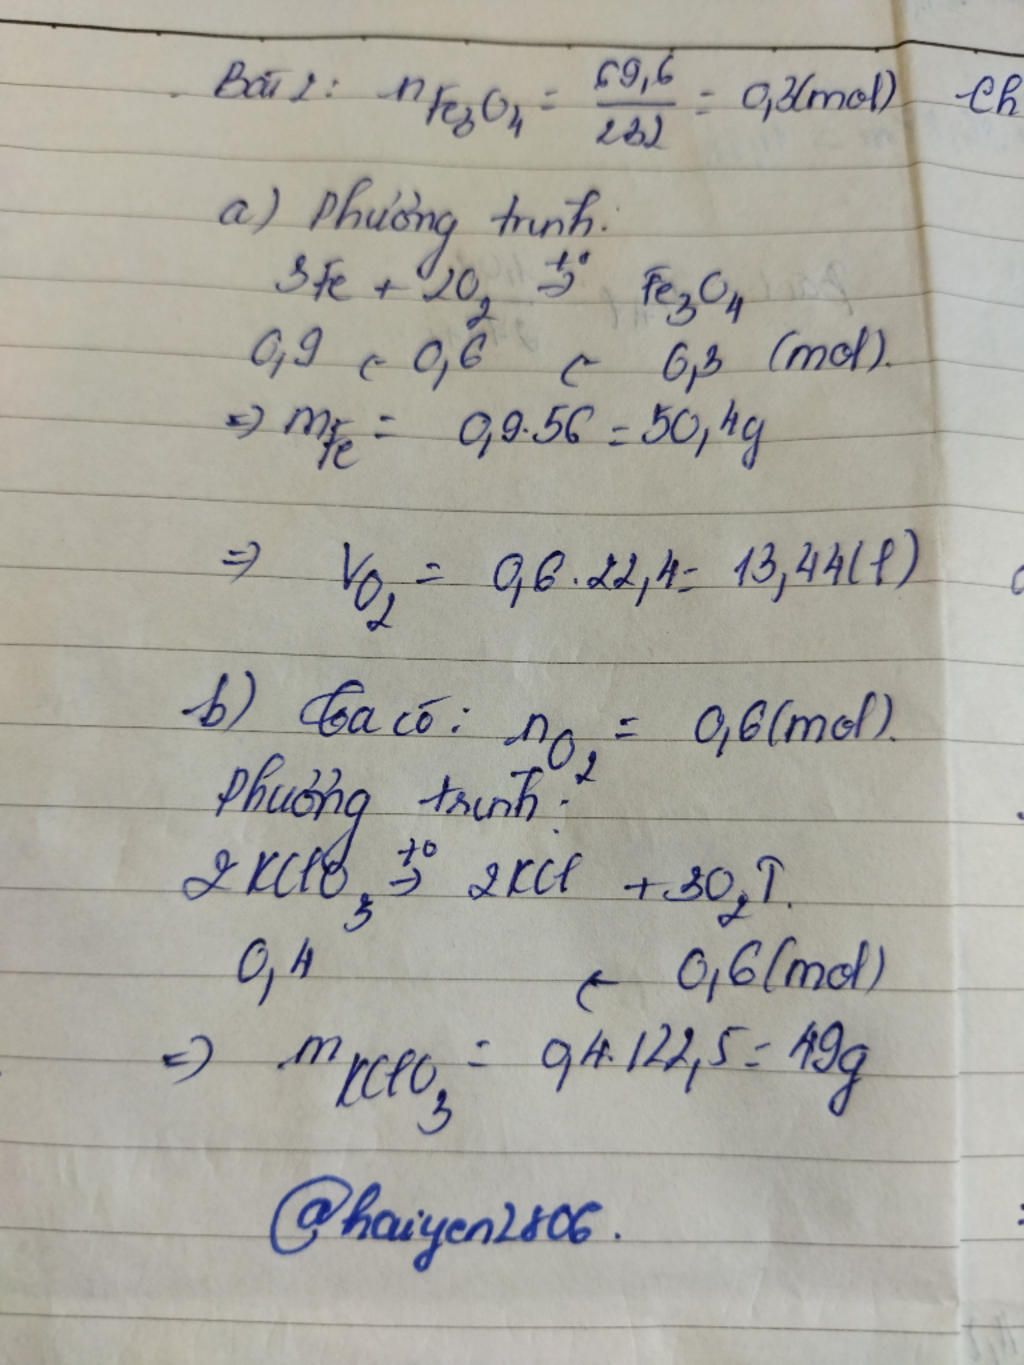 Bài 2: nFe₃O₄ = 69,6/232 = 0,3(mol) Ch
a) Phương trình:
3Fe + 2O₂ →t° Fe₃O₄
0,9 ← 0,6 ← 0,3 (mol).
=> mFe = 0,9.56 = 50,4g
=> VO₂ = 0,6.22,4 = 13,44(l)
b) Ta có: nO₂ = 0,6(mol).
Phương trình:
2KClO₃ →t° 2KCl + 3O₂↑.
0,4 ← 0,6(mol)
=> mKClO₃ = 0,4.122,5 = 49g
@haiyen2806.